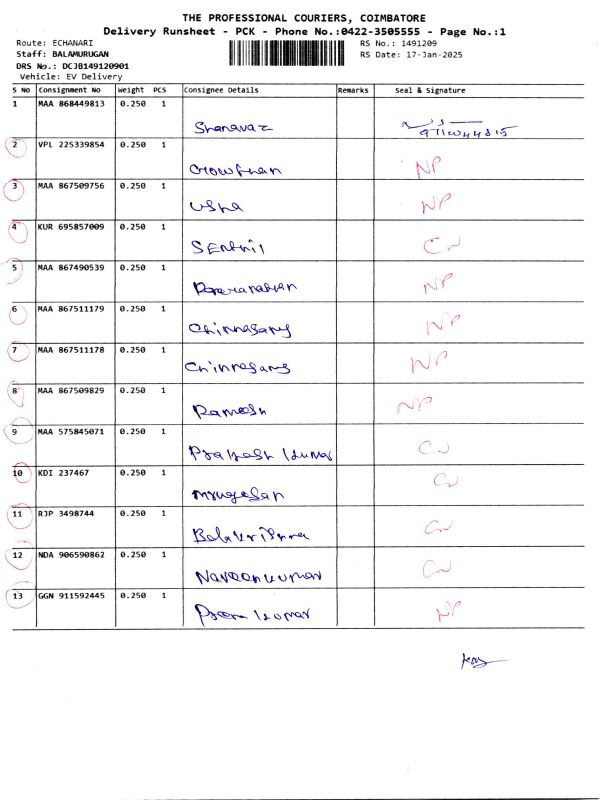 THE PROFESSIONAL COURIERS, COIMBATORE
Delivery Runsheet - PCK - Phone No.:0422-3505555 - Page No.:1
Route: ECHANARI RS No.: 1491209
Staff: BALAMURUGAN RS Date: 17-Jan-2025
DRS No.: DCJB149120901
Vehicle: EV Delivery
S No Consignment No Weight PCS Consignee Details Remarks Seal & Signature
1 MAA 868449813 0.250 1
Shanavaz
2 VPL 225339854 0.250 1
Gowtham NP
3 MAA 867509756 0.250 1
Usha NP
4 KUR 695857009 0.250 1
Senthil CN
5 MAA 867490539 0.250 1
NP
6 MAA 867511179 0.250 1
Chinnasamy NP
7 MAA 867511178 0.250 1
Chinnasamy NP
8 MAA 867509829 0.250 1
Ramesh NP
9 MAA 575845071 0.250 1
Prakash kumar CN
10 KDI 237467 0.250 1
Murugesan CN
11 RJP 3498744 0.250 1
Balakrishna CN
12 NDA 906590862 0.250 1
Naveenkumar CN
13 GGN 911592445 0.250 1
Prem kumar NP